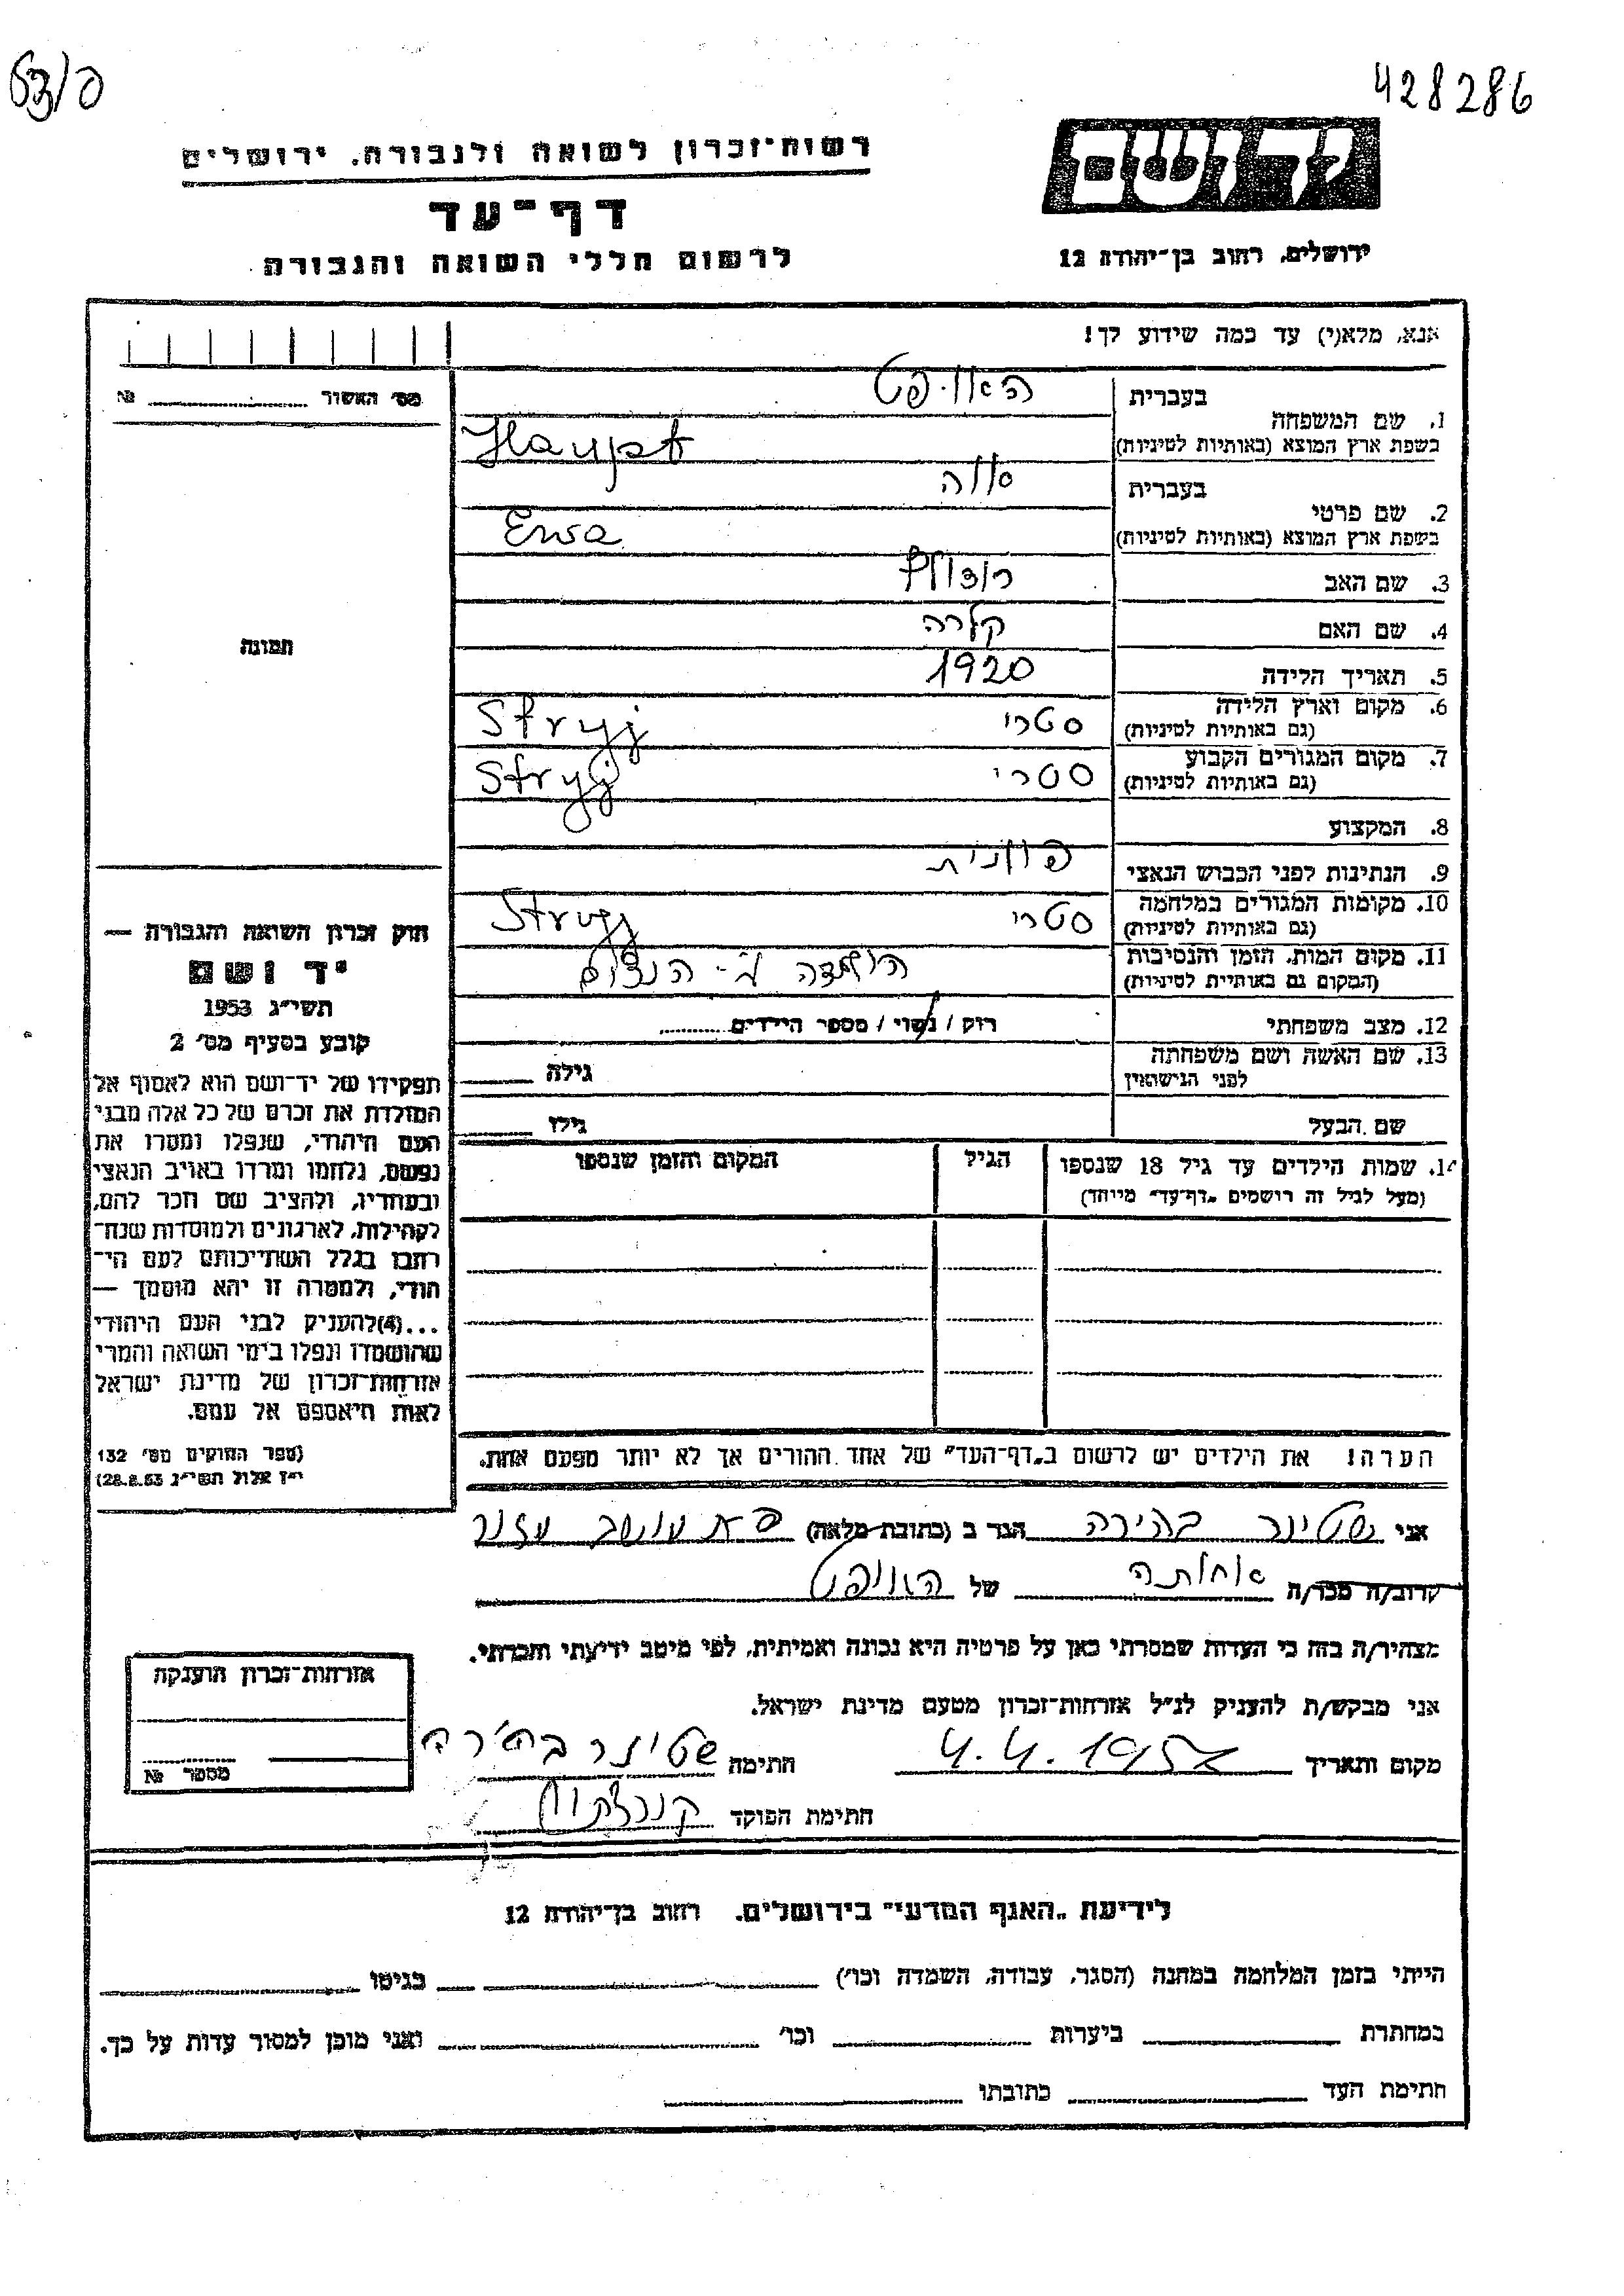 428286
יד ושם
ירושלים, רחוב בן־יהודה 12
רשות־זכרון לשואה ולגבורה, ירושלים
דף־עד
לרשום חללי השואה והגבורה
אנא, מלא(י) עד כמה שידוע לך!
1. שם המשפחה
בעברית האופט
בשפת ארץ המוצא (באותיות לטיניות) Haupt
2. שם פרטי
בעברית
בשפת ארץ המוצא (באותיות לטיניות) Ewa
3. שם האב רודולף
4. שם האם קלרה
5. תאריך הלידה 1920
6. מקום וארץ הלידה (גם באותיות לטיניות) סטרי Stryj
7. מקום המגורים הקבוע (גם באותיות לטיניות) סטרי Stryj
8. המקצוע
9. הנתינות לפני הכבוש הנאצי פולנית
10. מקומות המגורים במלחמה (גם באותיות לטיניות) סטרי Stryj
11. מקום המות, הזמן והנסיבות (המקום גם באותיות לטיניות) הושמדה ע״י הנאצים
12. מצב משפחתי רוק / נשוי / מספר הילדים
13. שם האשה ושם משפחתה לפני הנישואין גילה
שם הבעל גילו
14. שמות הילדים עד גיל 18 שנספו
(מעל לגיל זה רושמים „דף־עד״ מיוחד)
הגיל
המקום והזמן שנספו
הערה! את הילדים יש לרשום ב„דף־העד״ של אחד ההורים אך לא יותר מפעם אחת.
מס׳ האשור №
תמונה
חוק זכרון השואה והגבורה —
יד ושם
תשי״ג 1953
קובע בסעיף מס׳ 2
תפקידו של יד־ושם הוא לאסוף אל
המולדת את זכרם של כל אלה מבני
העם היהודי, שנפלו ומסרו את
נפשם, נלחמו ומרדו באויב הנאצי
ובעוזריו, ולהציב שם וזכר להם,
לקהילות, לארגונים ולמוסדות שנח־
רבו בגלל השתייכותם לעם הי־
הודי, ולמטרה זו יהא מוסמך —
...(4)להעניק לבני העם היהודי
שהושמדו ונפלו בימי השואה והמרי
אזרחות־זכרון של מדינת ישראל
לאות היאספם אל עמם.
(ספר החוקים מס׳ 132
י״ז אלול תשי״ג 28.8.53)
אני שטינר בהירה הגר ב (כתובת מלאה)
קרוב/ה מכר/ה אחותה של האופט
מצהיר/ה בזה כי העדות שמסרתי כאן על פרטיה היא נכונה ואמיתית, לפי מיטב ידיעתי והכרתי.
אני מבקש/ת להעניק לנ״ל אזרחות־זכרון מטעם מדינת ישראל.
מקום ותאריך חתימה שטינר בהירה
חתימת הפוקד
אזרחות־זכרון הוענקה
מספר №
לידיעת „האגף המדעי״ בירושלים, רחוב בן־יהודה 12
הייתי בזמן המלחמה במחנה (הסגר, עבודה, השמדה וכו׳) בגיטו
במחתרת ביערות וכו׳ ואני מוכן למסור עדות על כך.
חתימת העד כתובתו